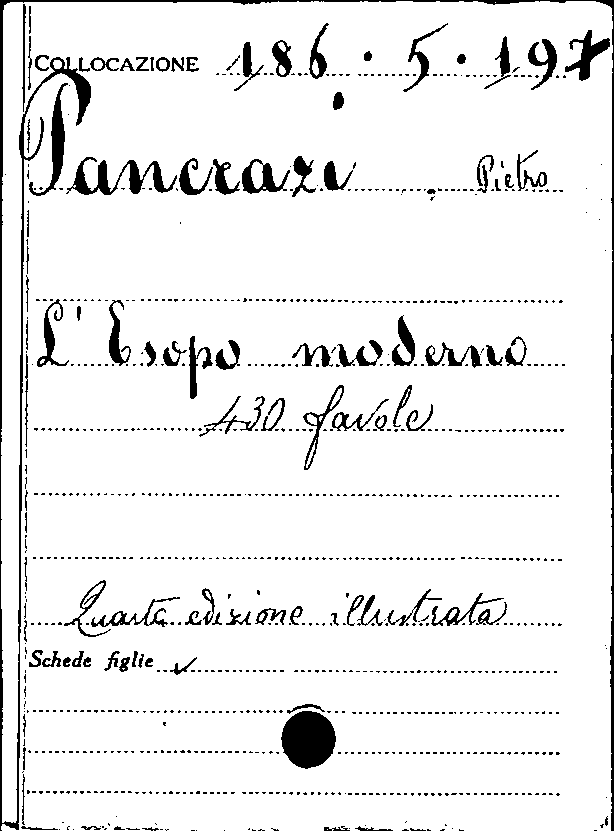 COLLOCAZIONE 186.5.197
Pancrazi. Pietro
L'Esopo moderno
430 favole
Quarta edizione illustrata
Schede figlie ✓